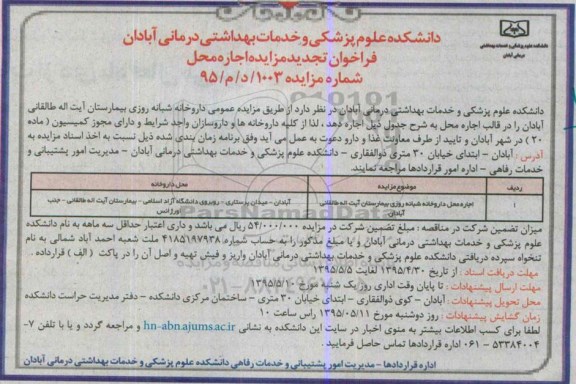 دانشکده علوم پزشکی و خدمات بهداشتی درمانی آبادان
فراخوان تجدید مزایده اجاره محل
شماره مزایده ۱۰۰۳/د/م/۹۵
دانشکده علوم پزشکی و خدمات بهداشتی
درمانی آبادان
دانشکده علوم پزشکی و خدمات بهداشتی درمانی آبادان در نظر دارد از طریق مزایده عمومی داروخانه شبانه روزی بیمارستان آیت اله طالقانی
آبادان را در قالب اجاره محل به شرح جدول ذیل اجاره دهد، لذا از کلیه داروخانه ها و داروسازان واجد شرایط و دارای مجوز کمیسیون (ماده
۲۰) در شهر آبادان و تایید از طرف معاونت غذا و دارو دعوت به عمل می آید وفق برنامه زمان بندی شده ذیل نسبت به اخذ اسناد مزایده به
آدرس: آبادان – ابتدای خیابان ۳۰ متری ذوالفقاری – دانشکده علوم پزشکی و خدمات بهداشتی درمانی آبادان – مدیریت امور پشتیبانی و
خدمات رفاهی – اداره امور قراردادها مراجعه نمایند.
ردیف موضوع مزایده محل داروخانه
۱ اجاره محل داروخانه شبانه روزی بیمارستان آیت اله طالقانی آبادان آبادان – میدان پرستاری – روبروی دانشگاه آزاد اسلامی – بیمارستان آیت اله طالقانی – جنب اورژانس
میزان تضمین شرکت در مناقصه: مبلغ تضمین شرکت در مزایده ۵۴/۰۰۰/۰۰۰ ریال می باشد و داری اعتبار حداقل سه ماهه به نام دانشکده
علوم پزشکی و خدمات بهداشتی درمانی آبادان و یا مبلغ مذکور را به حساب شماره ۴۱۸۵۱۹۷۹۳۸ ملت شعبه احمد آباد شمالی به نام
تنخواه سپرده دریافتی دانشکده علوم پزشکی و خدمات بهداشتی درمانی آبادان واریز و فیش تهیه و اصل آن را در پاکت (الف) قرارداده.
مهلت دریافت اسناد: از تاریخ ۱۳۹۵/۴/۳۰ لغایت ۱۳۹۵/۵/۵
مهلت ارسال پیشنهادات: تا پایان وقت اداری روز یک شنبه مورخ ۱۳۹۵/۵/۱۰
محل تحویل پیشنهادات: آبادان – کوی ذوالفقاری – ابتدای خیابان ۳۰ متری – ساختمان مرکزی دانشکده – دفتر مدیریت حراست دانشکده
زمان گشایش پیشنهادات: روز دوشنبه مورخ ۱۳۹۵/۰۵/۱۱ راس ساعت ۱۰
لطفا برای کسب اطلاعات بیشتر به منوی اخبار در سایت این دانشکده به نشانی hn-abn.ajums.ac.ir و مراجعه گردد و یا با تلفن ۷-
۵۳۳۸۴۰۰۴ – ۰۶۱ اداره قراردادها تماس حاصل فرمایید.
اداره قراردادها – مدیریت امور پشتیبانی و خدمات رفاهی دانشکده علوم پزشکی و خدمات بهداشتی درمانی آبادان